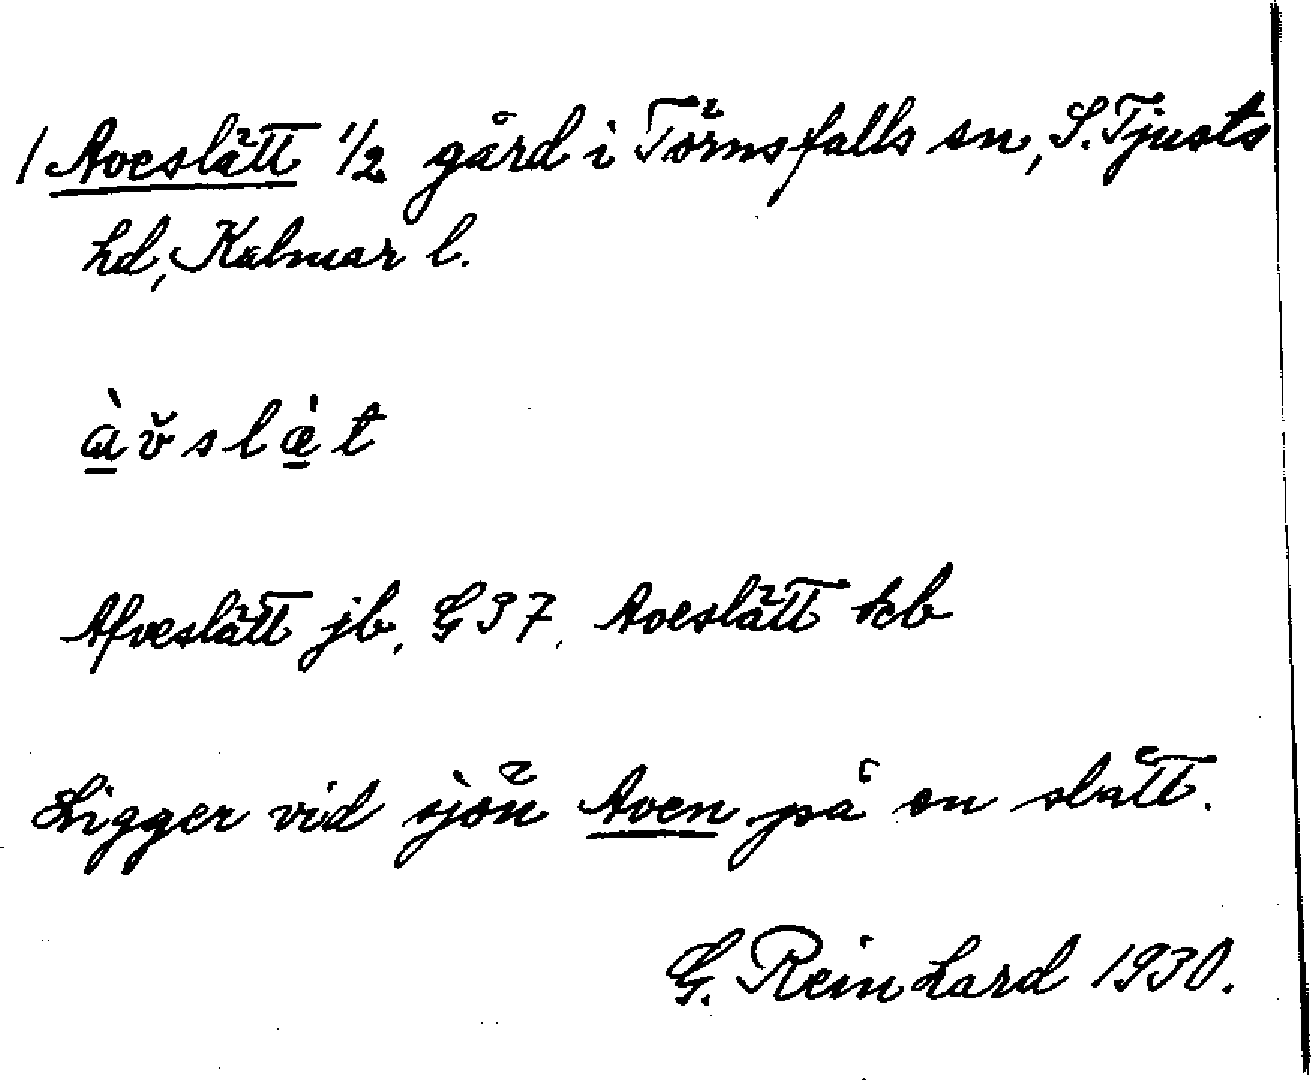 / Aveslätt 1/2 gård i Törnsfalls sn, S. Tjusts
hd, Kalmar l.
àv̆slæ̀t
Afveslätt jb, G 37, Aveslätt tcb
Ligger vid sjön Aven på en slätt.
G. Reinhard 1930.